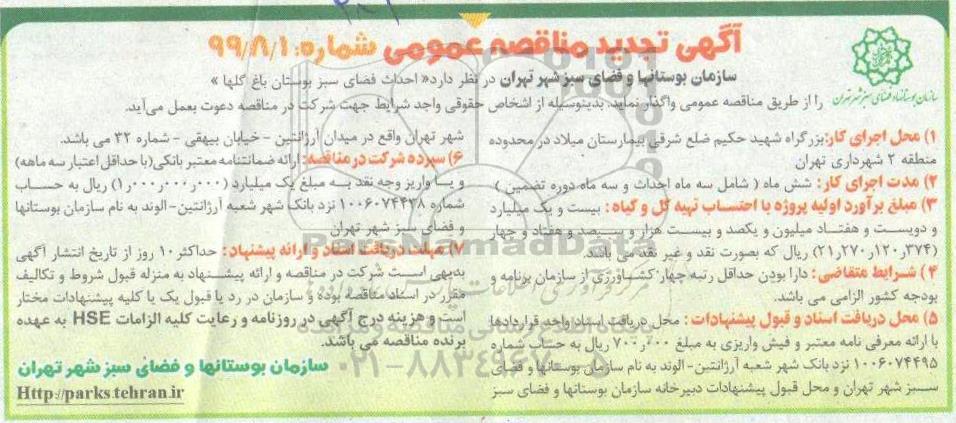 آگهی تجدید مناقصه عمومی شماره: ۹۹/۸/۱
سازمان بوستانها و فضای سبز شهر تهران در نظر دارد« احداث فضای سبز بوستان باغ گلها »
را از طریق مناقصه عمومی واگذار نماید. بدینوسیله از اشخاص حقوقی واجد شرایط جهت شرکت در مناقصه دعوت بعمل می‌آید.
سازمان بوستانها و فضای سبز شهر تهران
۱) محل اجرای کار: بزرگراه شهید حکیم ضلع شرقی بیمارستان میلاد در محدوده
منطقه ۲ شهرداری تهران
۲) مدت اجرای کار: شش ماه ( شامل سه ماه احداث و سه ماه دوره تضمین )
۳) مبلغ برآورد اولیه پروژه با احتساب تهیه گل و گیاه : بیست و یک میلیارد
و دویست و هفتاد میلیون و یکصد و بیست هزار و سیصد و هفتاد و چهار
(۲۱,۲۷۰,۱۲۰,۳۷۴) ریال که بصورت نقد و غیر نقد می باشد.
۴) شرایط متقاضی: دارا بودن حداقل رتبه چهار کشاورزی از سازمان برنامه و
بودجه کشور الزامی می باشد.
۵) محل دریافت اسناد و قبول پیشنهادات : محل دریافت اسناد واحد قراردادها
با ارائه معرفی نامه معتبر و فیش واریزی به مبلغ ۷۰۰,۰۰۰ ریال به حساب شماره
۱۰۰۶۰۷۴۴۹۵ نزد بانک شهر شعبه آرژانتین- الوند به نام سازمان بوستانها و فضای
سبز شهر تهران و محل قبول پیشنهادات دبیرخانه سازمان بوستانها و فضای سبز
شهر تهران واقع در میدان آرژانتین - خیابان بیهقی - شماره ۳۲ می باشد.
۶) سپرده شرکت در مناقصه: ارائه ضمانتنامه معتبر بانکی (با حداقل اعتبار سه ماهه)
و یا واریز وجه نقد به مبلغ یک میلیارد (۱,۰۰۰,۰۰۰,۰۰۰) ریال به حساب
شماره ۱۰۰۶۰۷۴۴۳۸ نزد بانک شهر شعبه آرژانتین-الوند به نام سازمان بوستانها
و فضای سبز شهر تهران
۷) مهلت دریافت اسناد و ارائه پیشنهاد: حداکثر ۱۰ روز از تاریخ انتشار آگهی
بدیهی است شرکت در مناقصه و ارائه پیشنهاد به منزله قبول شروط و تکالیف
مقرر در اسناد مناقصه بوده و سازمان در رد یا قبول یک یا کلیه پیشنهادات مختار
است و هزینه درج آگهی در روزنامه و رعایت کلیه الزامات HSE به عهده
برنده مناقصه می باشد.
سازمان بوستانها و فضای سبز شهر تهران
Http://parks.tehran.ir
۰۲۱-۸۸۳۴۹۶۷۰-۵